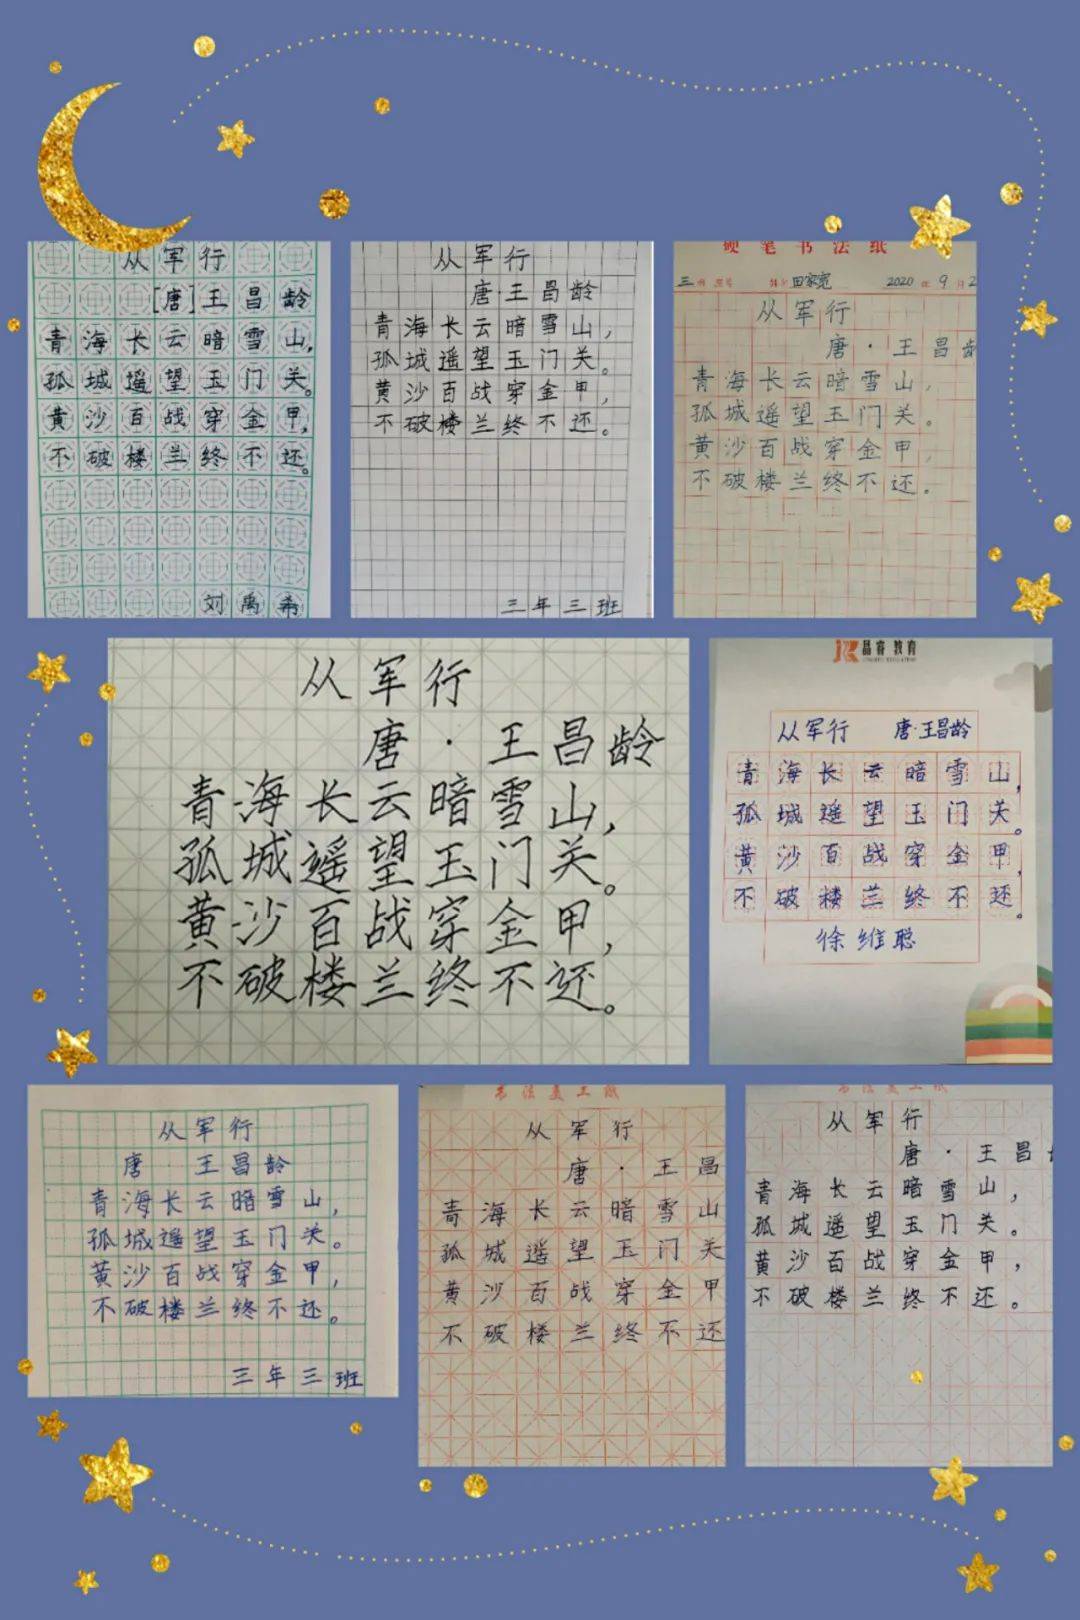 从军行
[唐]王昌龄
青海长云暗雪山，
孤城遥望玉门关。
黄沙百战穿金甲，
不破楼兰终不还。
刘禹希
从军行
唐·王昌龄
青海长云暗雪山，
孤城遥望玉门关。
黄沙百战穿金甲，
不破楼兰终不还。
三年三班
硬笔书法纸
三 田家宽 2020年9月2
从军行
唐·王昌龄
青海长云暗雪山，
孤城遥望玉门关。
黄沙百战穿金甲，
不破楼兰终不还。
从军行
唐·王昌龄
青海长云暗雪山，
孤城遥望玉门关。
黄沙百战穿金甲，
不破楼兰终不还。
晶睿教育
从军行 唐·王昌龄
青海长云暗雪山，
孤城遥望玉门关。
黄沙百战穿金甲，
不破楼兰终不还。
徐维聪
从军行
唐·王昌龄
青海长云暗雪山，
孤城遥望玉门关。
黄沙百战穿金甲，
不破楼兰终不还。
三年三班
从军行
唐·王昌
青海长云暗雪山
孤城遥望玉门关
黄沙百战穿金甲
不破楼兰终不还
从军行
唐·王昌
青海长云暗雪山，
孤城遥望玉门关。
黄沙百战穿金甲，
不破楼兰终不还。